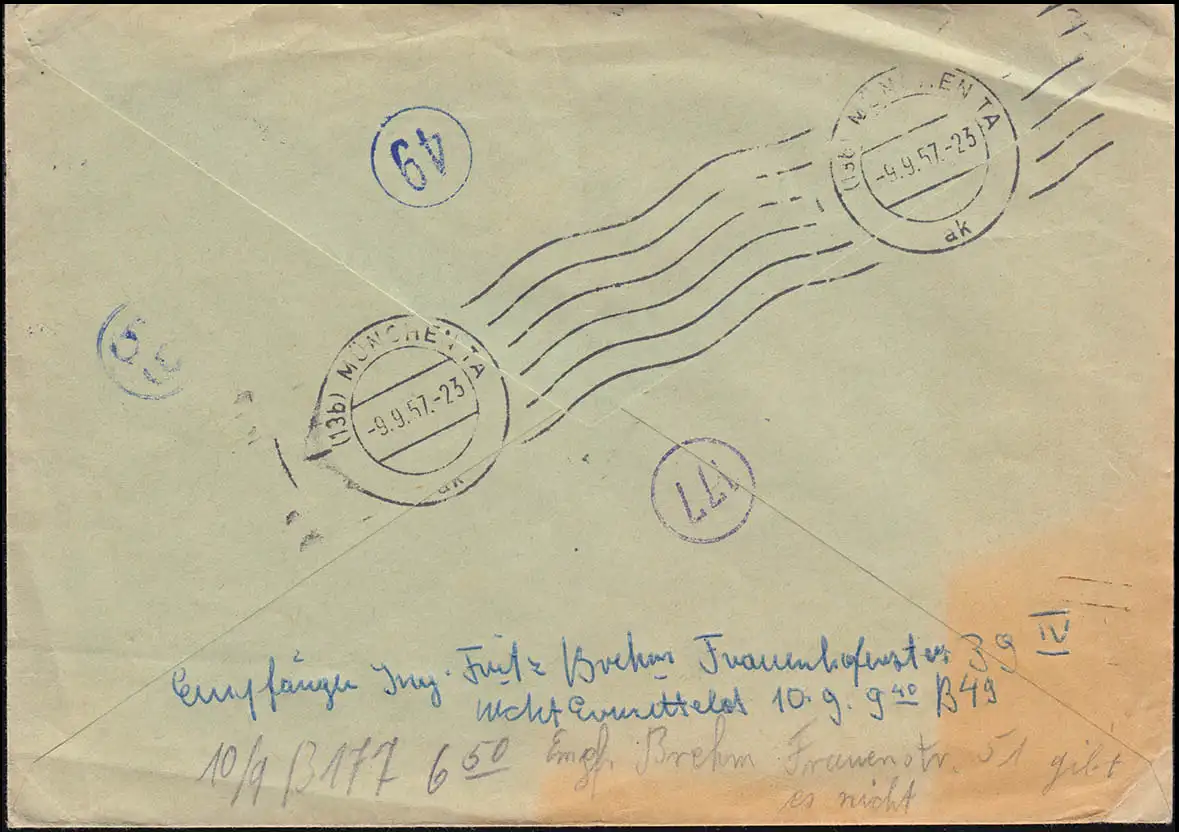 (13b) MÜNCHEN TA
-9.9.57.-23
ak
49
(13b) MÜNCHEN TA
-9.9.57.-23
177
Empfänger Ing. Fritz Brehm Frauenhoferstr. 39 IV
nicht ermittelt 10.9. 9⁴⁰ B49
10/9 B177 6⁵⁰ Empf. Brehm Frauenstr. 51 gibt
es nicht